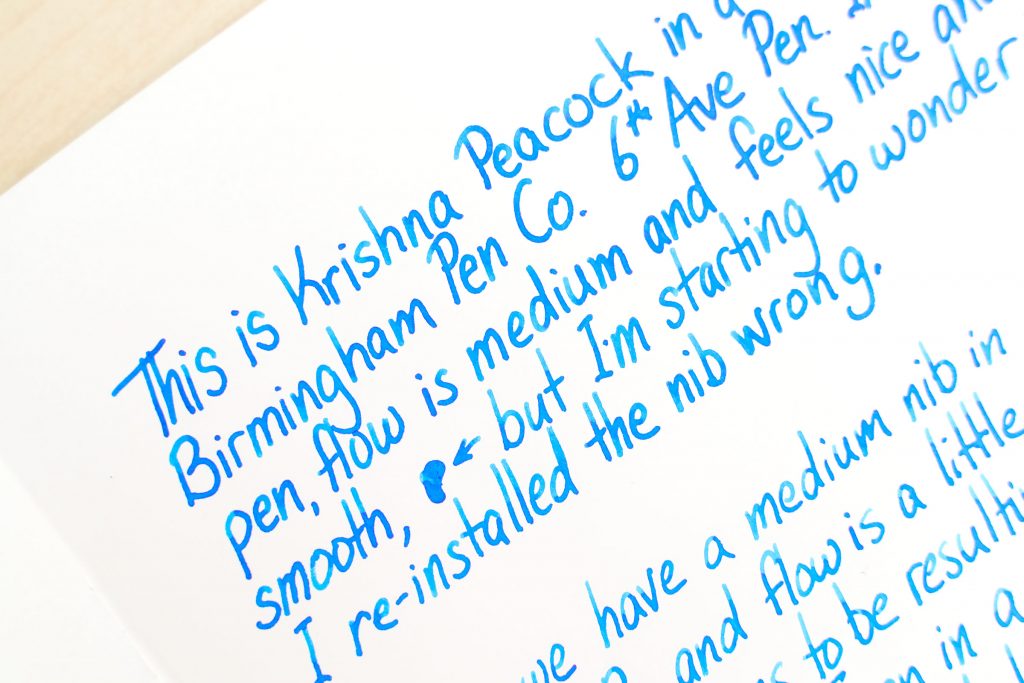 This is Krishna Peacock in a
Birmingham Pen Co. 6th Ave Pen.
pen, flow is medium and feels nice and
smooth, but I'm starting to wonder
I re-installed the nib wrong.
have a medium nib in
and flow is a little
to be resulting
in a